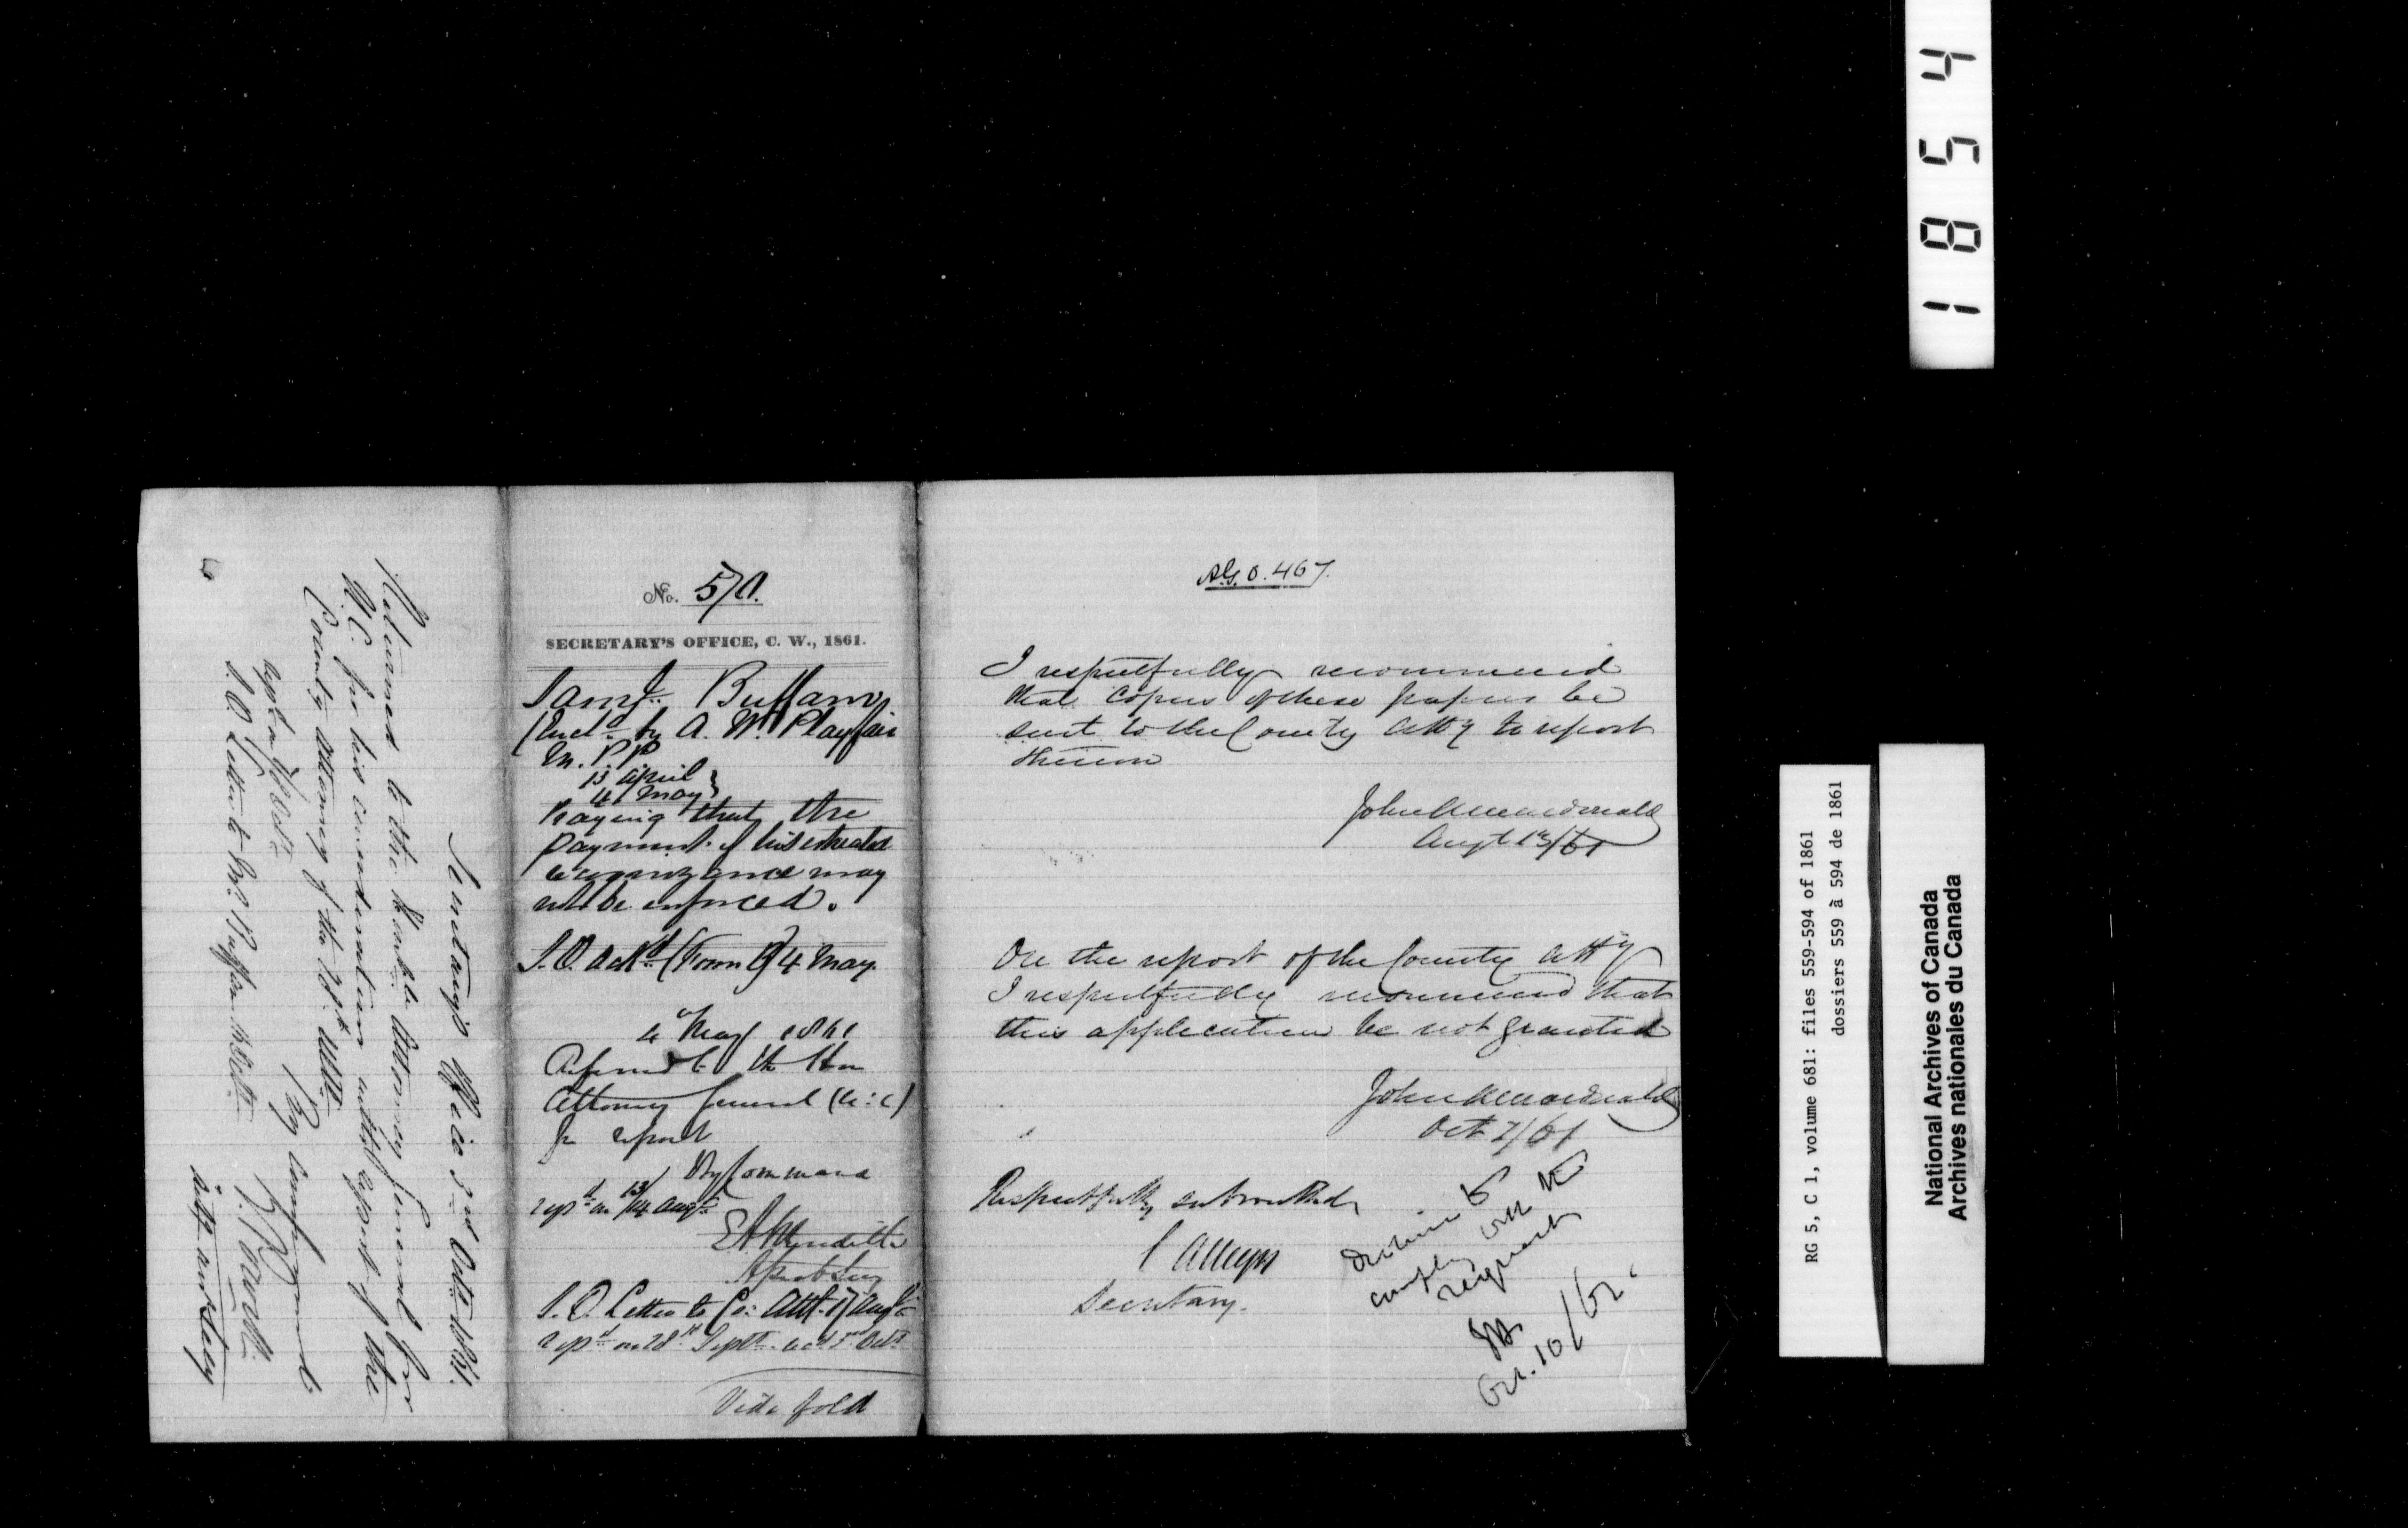 1854
No. 570.
SECRETARY'S OFFICE, C. W., 1861.
Saml. Buffam
(Encd. by A. W. Playfair
M.P.P.
13 April
4 May }
Praying that the
payment of his estreated
recognizance may
not be enforced.
S.O. Ackd. (Form ) 4 May.
4 May 1861
Referred to the Hon
Attorney General (U:C)
for report
By Command
repd. on 13/14 Augt.
E A Meredith
Asst Secy
S.O. Letter to Co: Att. 17 Augt
repd. on 28th Septr. ackd 3rd Octr
Vide fold
Secretary's Office 3rd Octr. 1861.
Returned to the Honble. Attorney General for
U.C. for his consideration with report of the
County Attorney of the 28th Ulto.
By Command
Asst. Secretary
S.O. Letter to Mr. Buffam Octr.
A.G.O. 467.
I respectfully recommend
that copies of these papers be
sent to the County Atty to report
thereon
John A Macdonald
Augt 13/61
On the report of the County Atty
I respectfully recommend that
this application be not granted
John A Macdonald
Oct 7/61
Respectfully submitted,
C Alleyn
Secretary.
Decline to
comply with the
request
Oct. 10/61.
RG 5, C 1, volume 681: files 559-594 of 1861
dossiers 559 à 594 de 1861
National Archives of Canada
Archives nationales du Canada